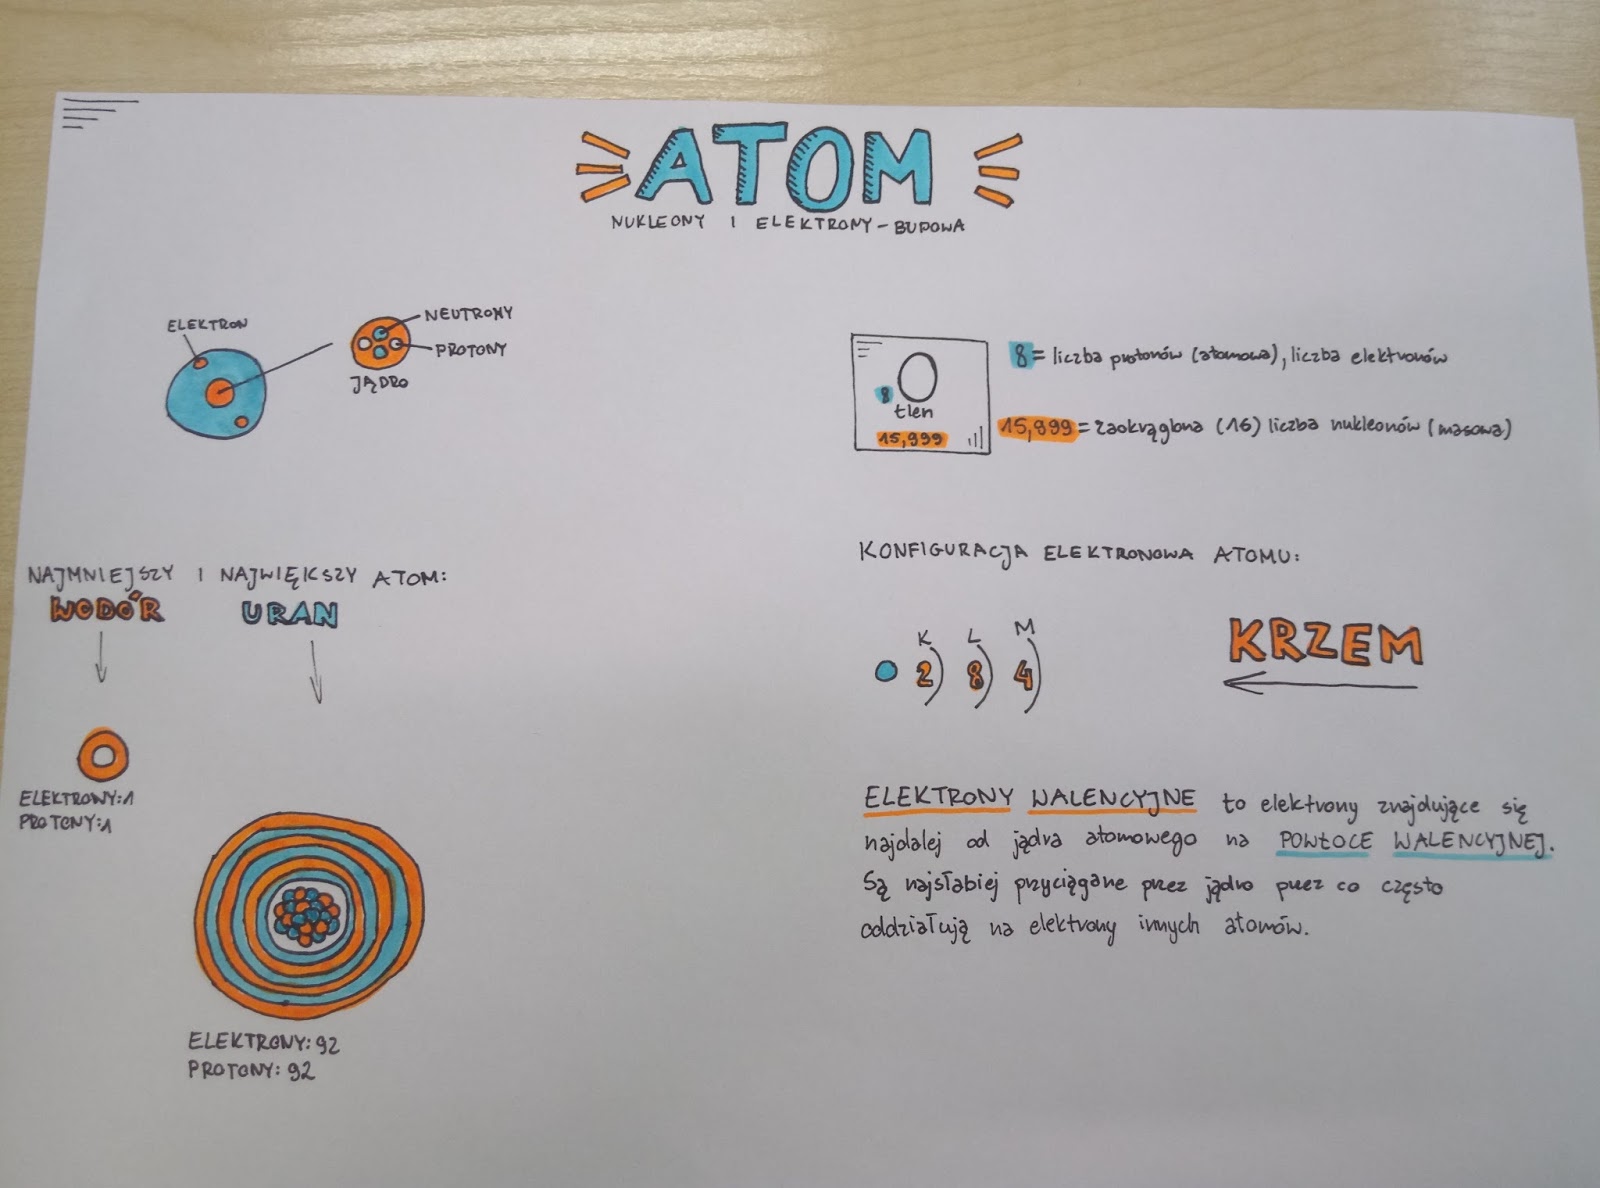 ATOM
NUKLEONY I ELEKTRONY - BUDOWA
ELEKTRON
NEUTRONY
PROTONY
JĄDRO
8
O
tlen
15,999
8 = liczba protonów (atomowa), liczba elektronów
15,999 = zaokrąglona (16) liczba nukleonów (masowa)
NAJMNIEJSZY I NAJWIĘKSZY ATOM:
WODÓR URAN
ELEKTRONY: 1
PROTONY: 1
ELEKTRONY: 92
PROTONY: 92
KONFIGURACJA ELEKTRONOWA ATOMU:
K L M
2) 8) 4)
KRZEM
ELEKTRONY WALENCYJNE to elektrony znajdujące się
najdalej od jądra atomowego na POWŁOCE WALENCYJNEJ.
Są najsłabiej przyciągane przez jądro przez co często
oddziałują na elektrony innych atomów.